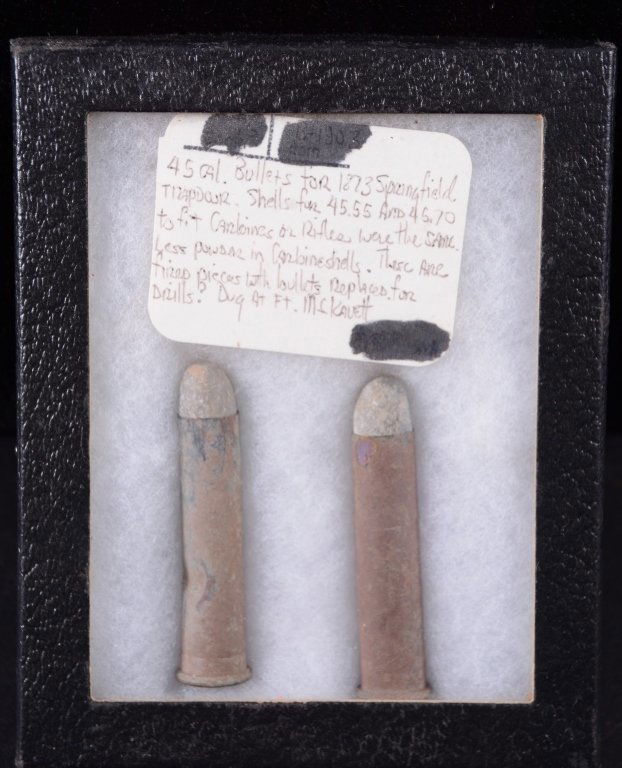 45 CAL. Bullets for 1873 Springfield
TRAPDOOR. Shells for 45.55 AND 45.70
to fit Carbines or Rifles were the same.
Less powder in Carbine shells. These are
Fired pieces with bullets Replaced for
Drills? Dug At Ft. McKavett